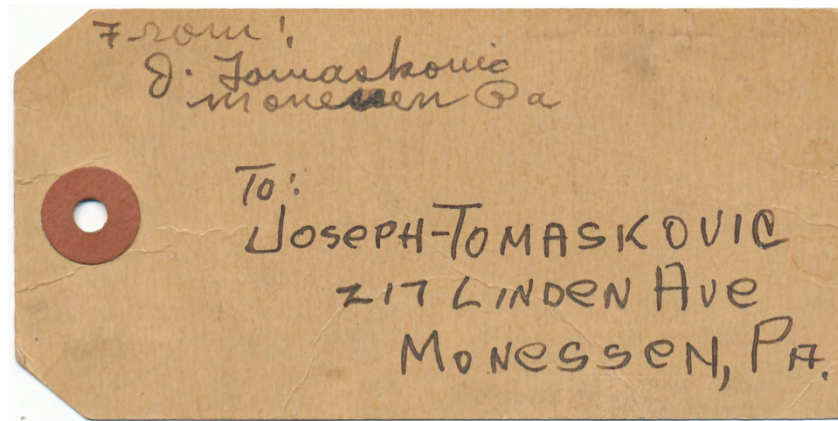 From:
J. Tomaskovic
Monessen Pa
To:
JOSEPH-TOMASKOVIC
217 LINDEN AVE
MONESSEN, PA.